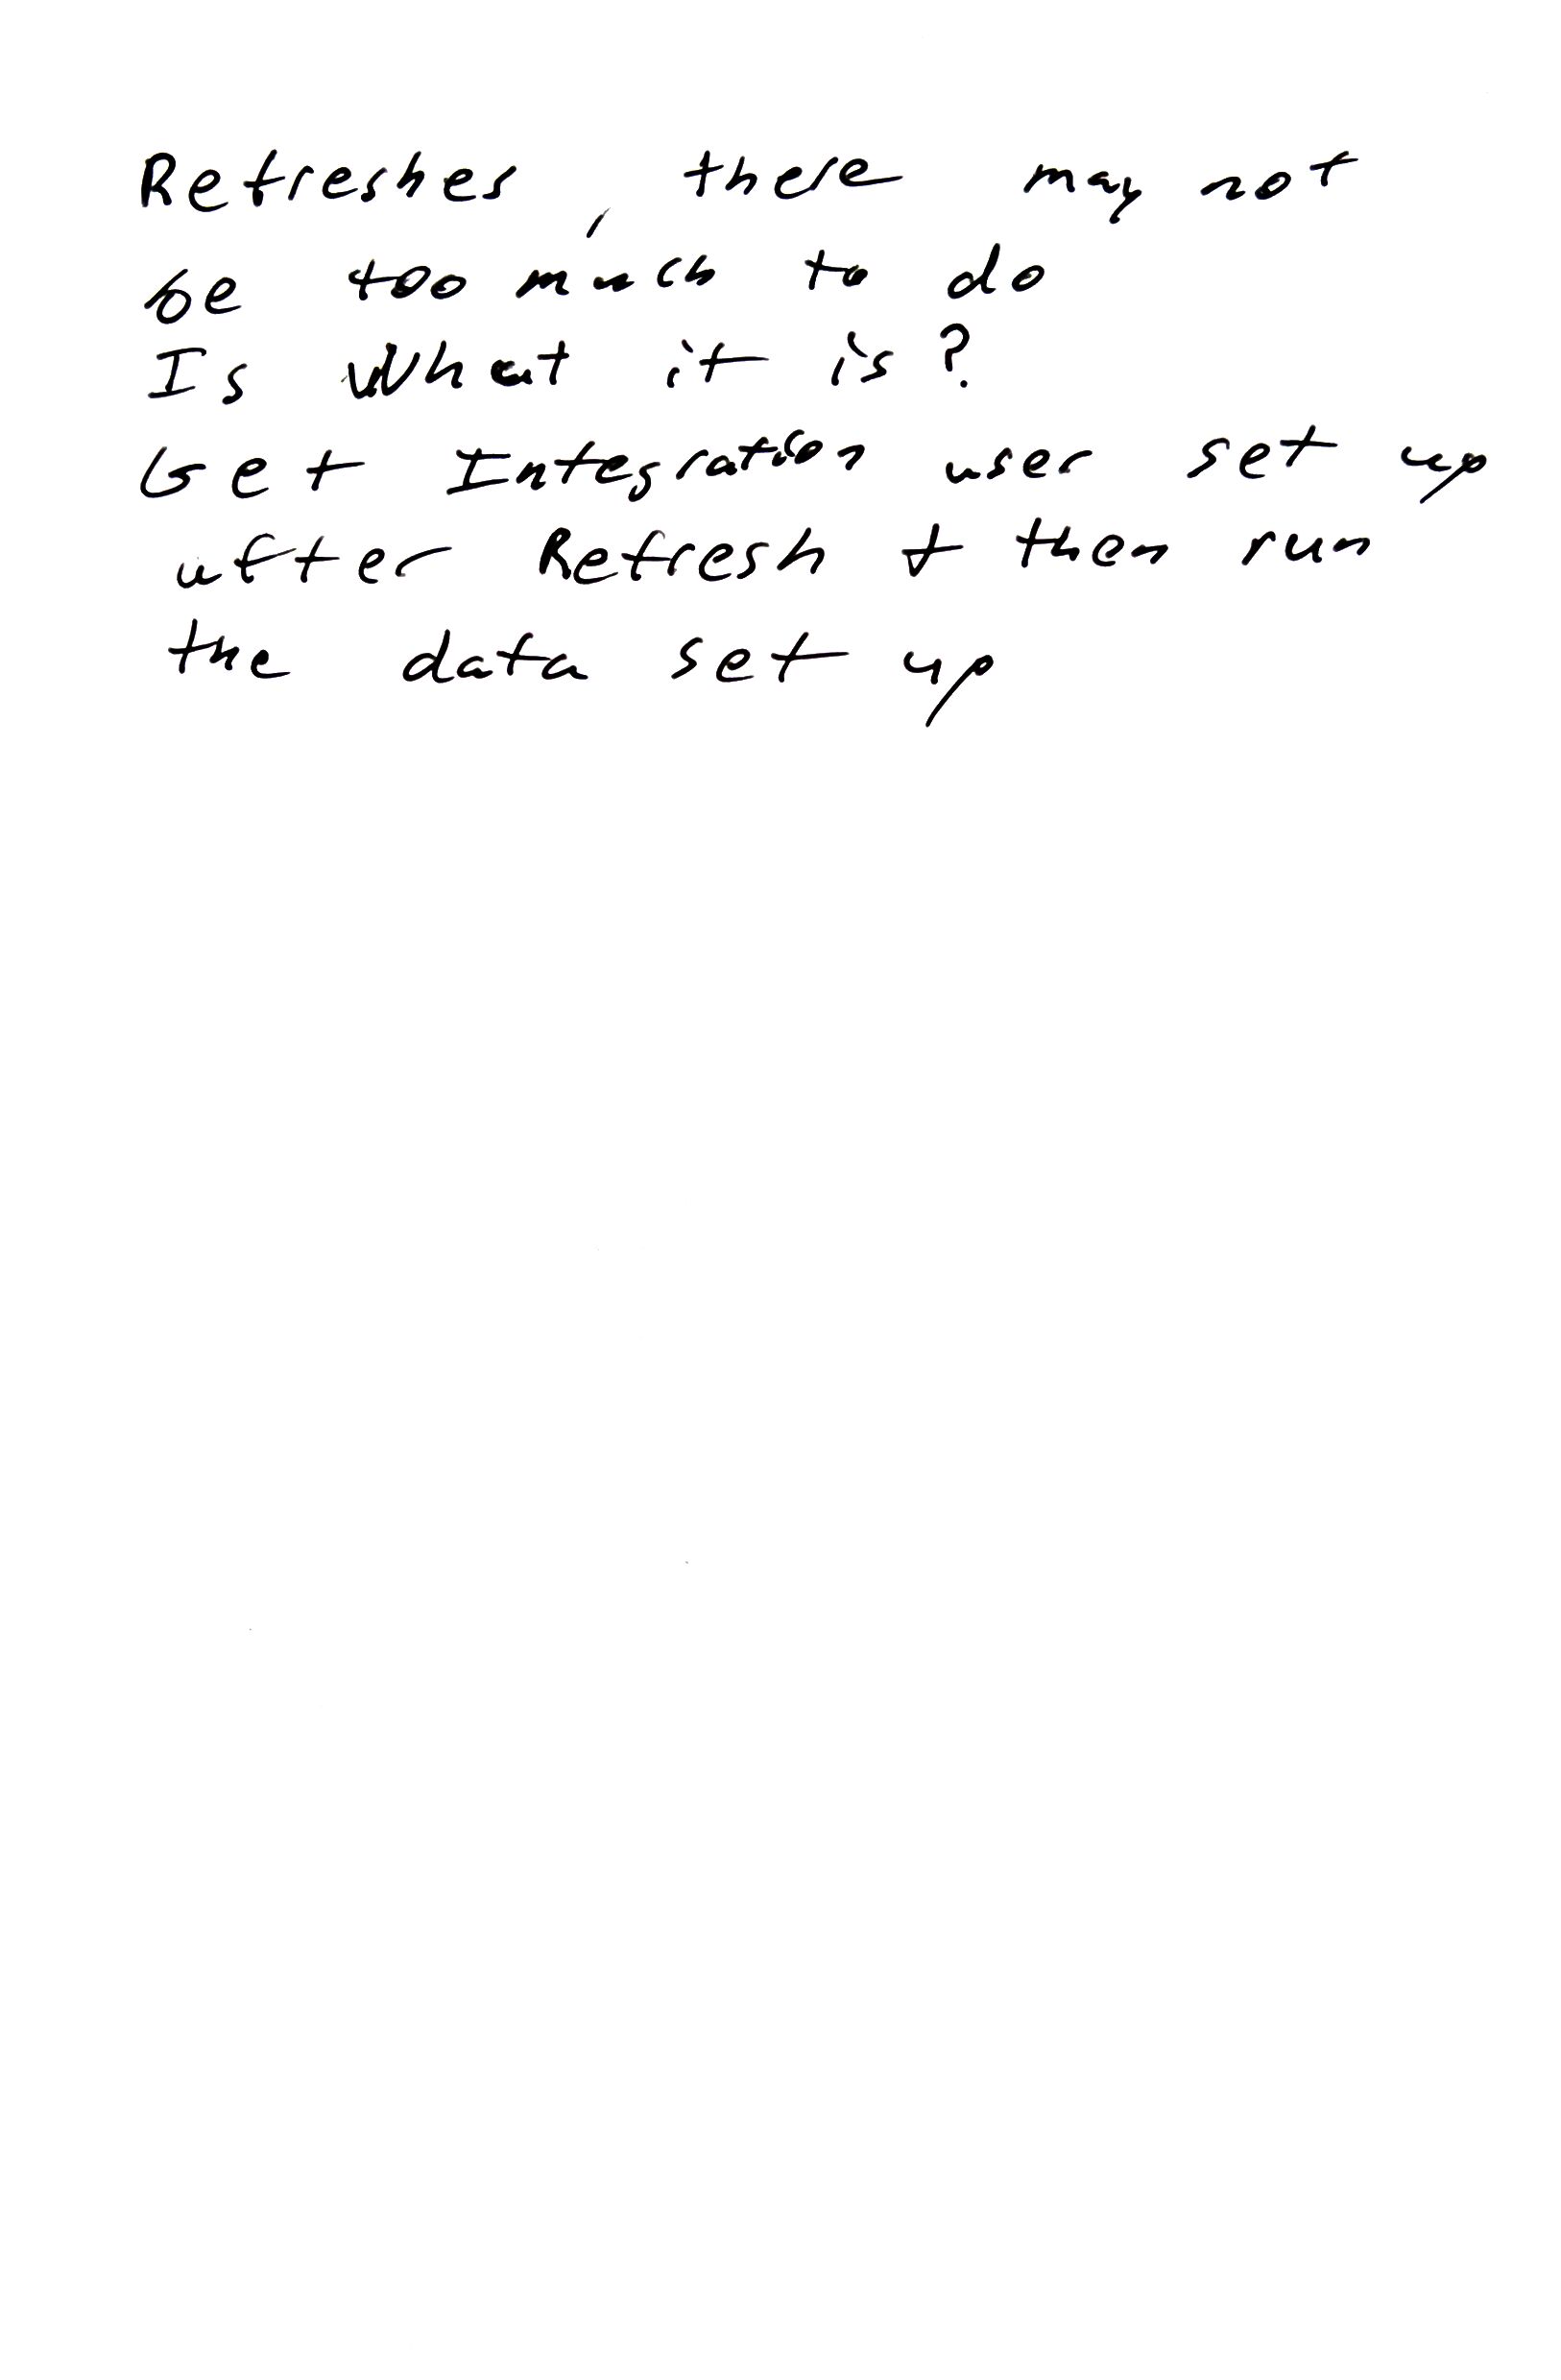 Refreshes, there may not
be too much to do
Is What it is?
Get Integration user set up
after Refresh + then run
the data set up